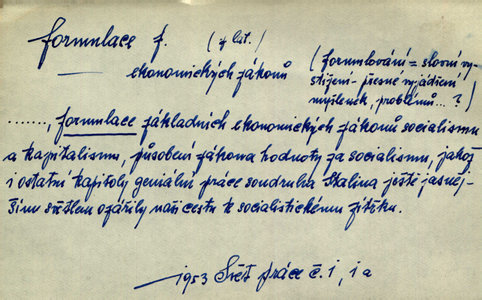 formulace f. (z lit.)
ekonomických zákonů
(formulování = slovní vy-
stižení - přesné vyjádření
myšlenek, problémů... ?)
......., formulace základních ekonomických zákonů socialismu
a kapitalismu, působení zákona hodnoty za socialismu, jakož
i ostatní kapitoly geniální práce soudruha Stalina ještě jasněj-
ším světlem ozářily naši cestu k socialistickému zítřku.
1953 Svět práce č. 1, 1a